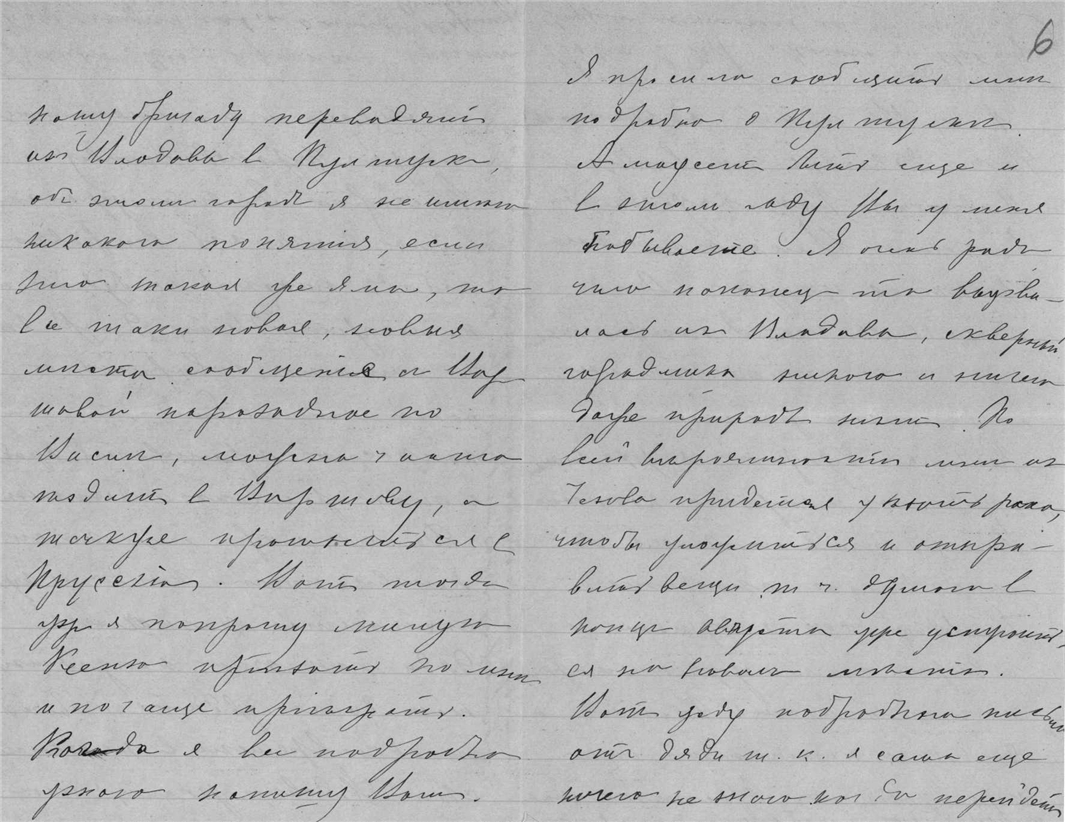 нашу бригаду переводятъ
изъ Влодавы в Пултускъ,
объ этомъ городѣ я не имѣю
никакого понятія, если
это такая же яма, то
все таки новая, новыя
мѣста сообщеніе съ Вар
шавой пароходное по
Висле, можно часто
ѣздить в Варшаву, а
также прокатиться в
Пруссію. Вотъ тогда
уже я попрошу милую
Ксению пріѣхать ко мнѣ
и почаще пріѣзжать.
Когда я все подробно
узнаю напишу Вамъ.
6
Я просила сообщить мнѣ
подробно о Пултускѣ.
А можетъ быть еще и
в этомъ году Вы у меня
побываете. Я очень рада
что наконецъ то вырва-
лась из Влодавы, скверный
городишка никого и ничего
даже природы нѣтъ. По
всей вѣроятности мнѣ изъ
придется уѣхать рано,
чтобы уложиться и отпра-
вить вещи, т. ч. думаю в
конце августа уже устроит
ся на новомъ мѣстѣ.
Вотъ жду подробнаго письма
отъ дяди т. к. я сама еще
ничего не знаю когда перейдетъ